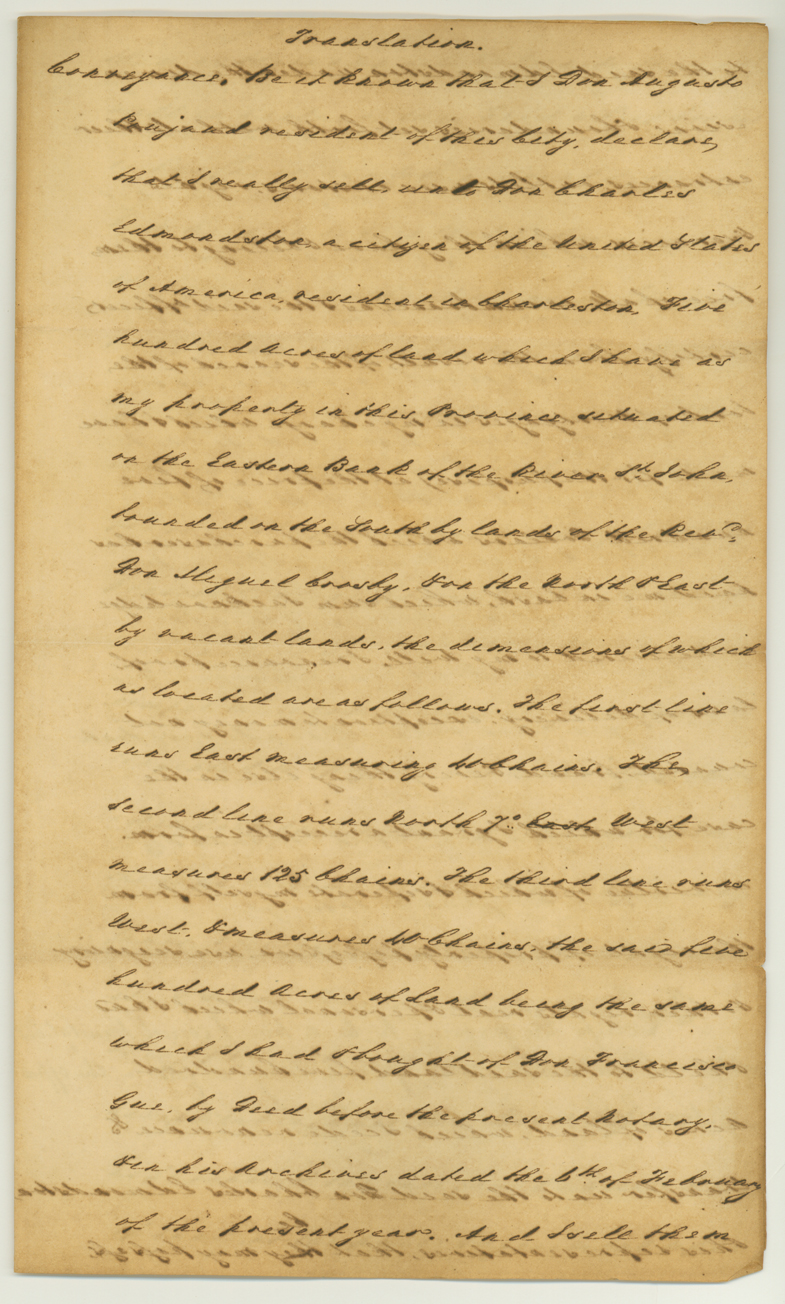 Translation.
Conveyance. Be it known that I Don Augusto
Poujaud resident of this City, declare,
that I really sell, unto Don Charles
Edmondston, a citizen of the United States
of America, resident in Charleston, Five
hundred Acres of land which I have as
my property in this Province situated
on the Eastern Bank of the River St. John,
bounded on the South by lands of the Revd.
Don Miguel Crosby, & on the North & East
by vacant lands, the dimensions of which
as located are as follows. The first line
runs East measuring 40 Chains. The,
second line runs North 7° East West
measures 125 Chains. The third line runs
West, & measures 40 Chains, the said five
hundred Acres of Land being the same
which I had & bought of Don Francisco
Gue, by Deed before the present Notary,
& in his Archives dated the 6th. of February
of the present year. And I sell them